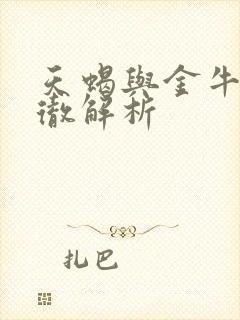 天蝎與金牛
徹解析
扎巴